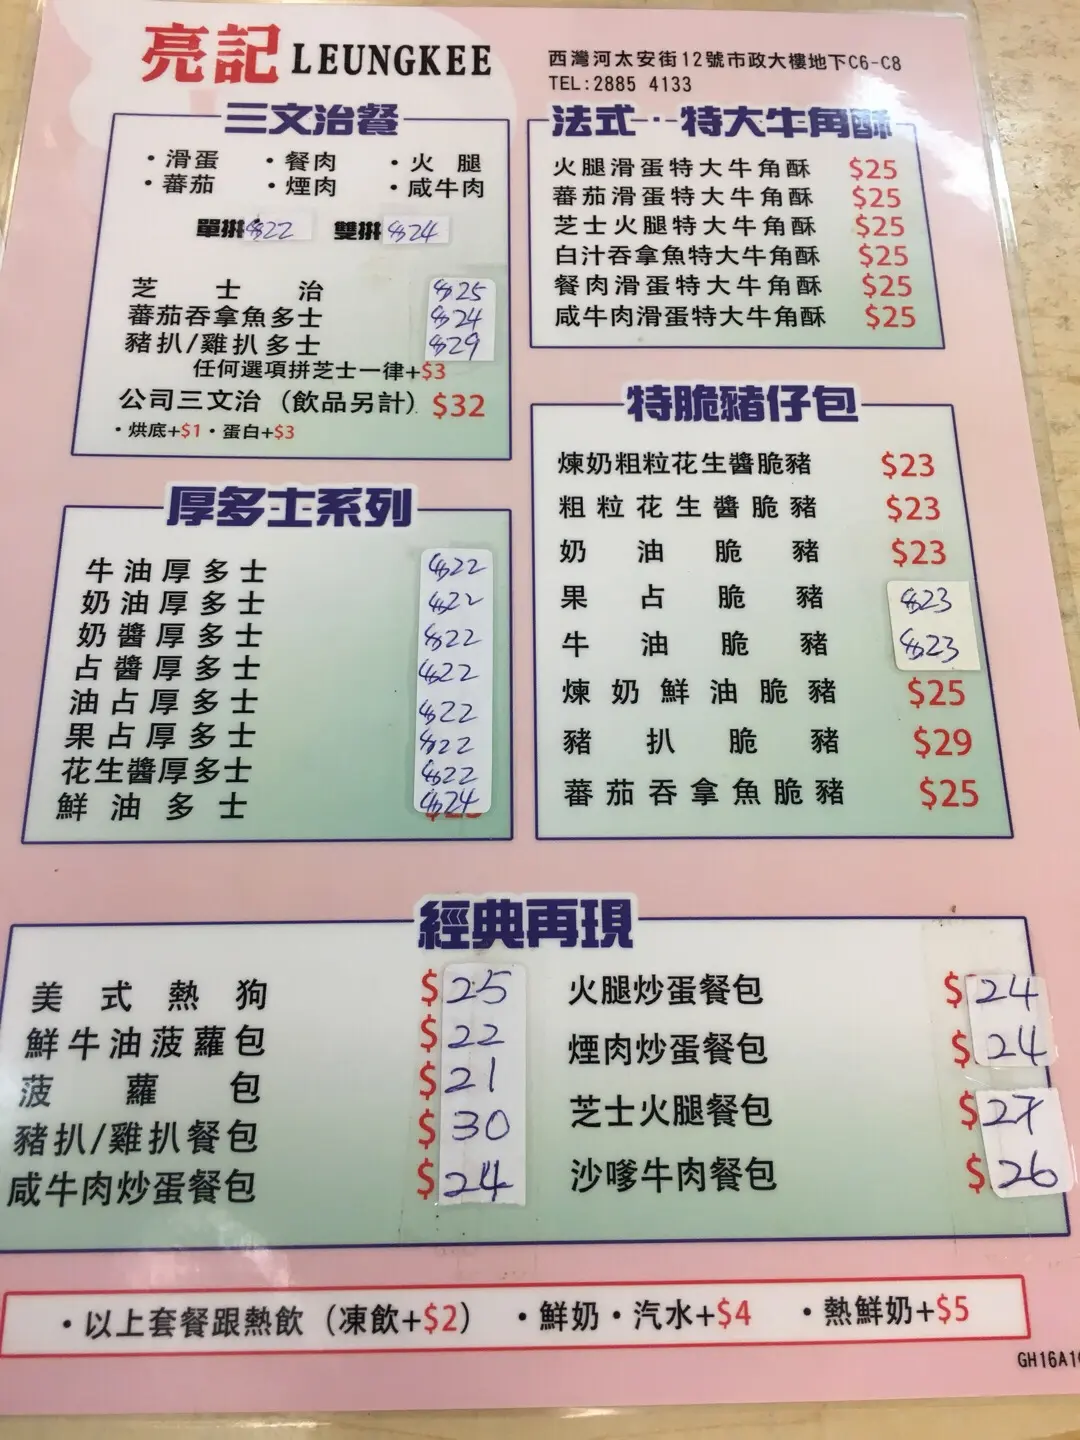 亮記 LEUNGKEE
西灣河太安街12號市政大樓地下C6-C8
TEL:2885 4133
三文治餐
・滑蛋 ・餐肉 ・火腿
・蕃茄 ・煙肉 ・咸牛肉
單拼$22 雙拼$24
芝士治 $25
蕃茄吞拿魚多士 $24
豬扒/雞扒多士 $29
任何選項拼芝士一律+$3
公司三文治（飲品另計）$32
・烘底+$1・蛋白+$3
法式‧‧特大牛角酥
火腿滑蛋特大牛角酥 $25
蕃茄滑蛋特大牛角酥 $25
芝士火腿特大牛角酥 $25
白汁吞拿魚特大牛角酥 $25
餐肉滑蛋特大牛角酥 $25
咸牛肉滑蛋特大牛角酥 $25
厚多士系列
牛油厚多士 $22
奶油厚多士 $22
奶醬厚多士 $22
占醬厚多士 $22
油占厚多士 $22
果占厚多士 $22
花生醬厚多士 $22
鮮油多士 $24
特脆豬仔包
煉奶粗粒花生醬脆豬 $23
粗粒花生醬脆豬 $23
奶油脆豬 $23
果占脆豬 $23
牛油脆豬 $23
煉奶鮮油脆豬 $25
豬扒脆豬 $29
蕃茄吞拿魚脆豬 $25
經典再現
美式熱狗 $25
鮮牛油菠蘿包 $22
菠蘿包 $21
豬扒/雞扒餐包 $30
咸牛肉炒蛋餐包 $24
火腿炒蛋餐包 $24
煙肉炒蛋餐包 $24
芝士火腿餐包 $27
沙嗲牛肉餐包 $26
・以上套餐跟熱飲（凍飲+$2） ・鮮奶・汽水+$4 ・熱鮮奶+$5